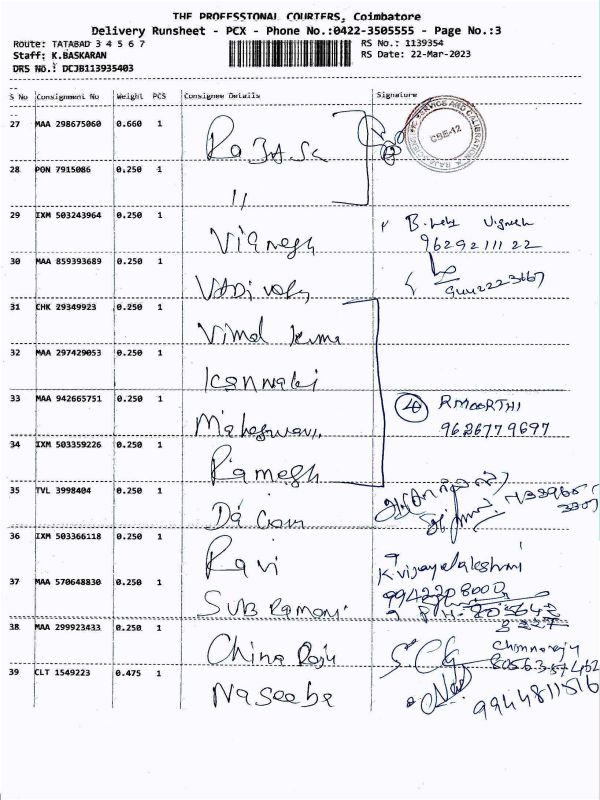 THE PROFESSIONAL COURIERS, Coimbatore
Delivery Runsheet - PCX - Phone No.:0422-3505555 - Page No.:3
Route: TATABAD 3 4 5 6 7
RS No.: 1139354
Staff: K.BASKARAN
RS Date: 22-Mar-2023
DRS No.: DCJB113935403
S No Consignment No Weight PCS Consignee Details Signature
27 MAA 298675060 0.660 1
CBE-12
28 PON 7915086 0.250 1 "
29 IXM 503243964 0.250 1 Vignesh Vignesh
9629211122
30 MAA 859393689 0.250 1
31 CHK 29349923 0.250 1 Vimal Kuma
32 MAA 297429053 0.250 1 Kannaki
33 MAA 942665751 0.250 1 Maheswari 4 RMOORTHI
9626779697
34 IXM 503359226 0.250 1 Ramesh
35 TVL 3998404 0.250 1
36 IXM 503366118 0.250 1 Ravi K.vijayalakshmi
9942208000
37 MAA 570648830 0.250 1 SUB Ramani
38 MAA 299923433 0.250 1 China Raju Chinnaraju
39 CLT 1549223 0.475 1 Naseeba
9944811516